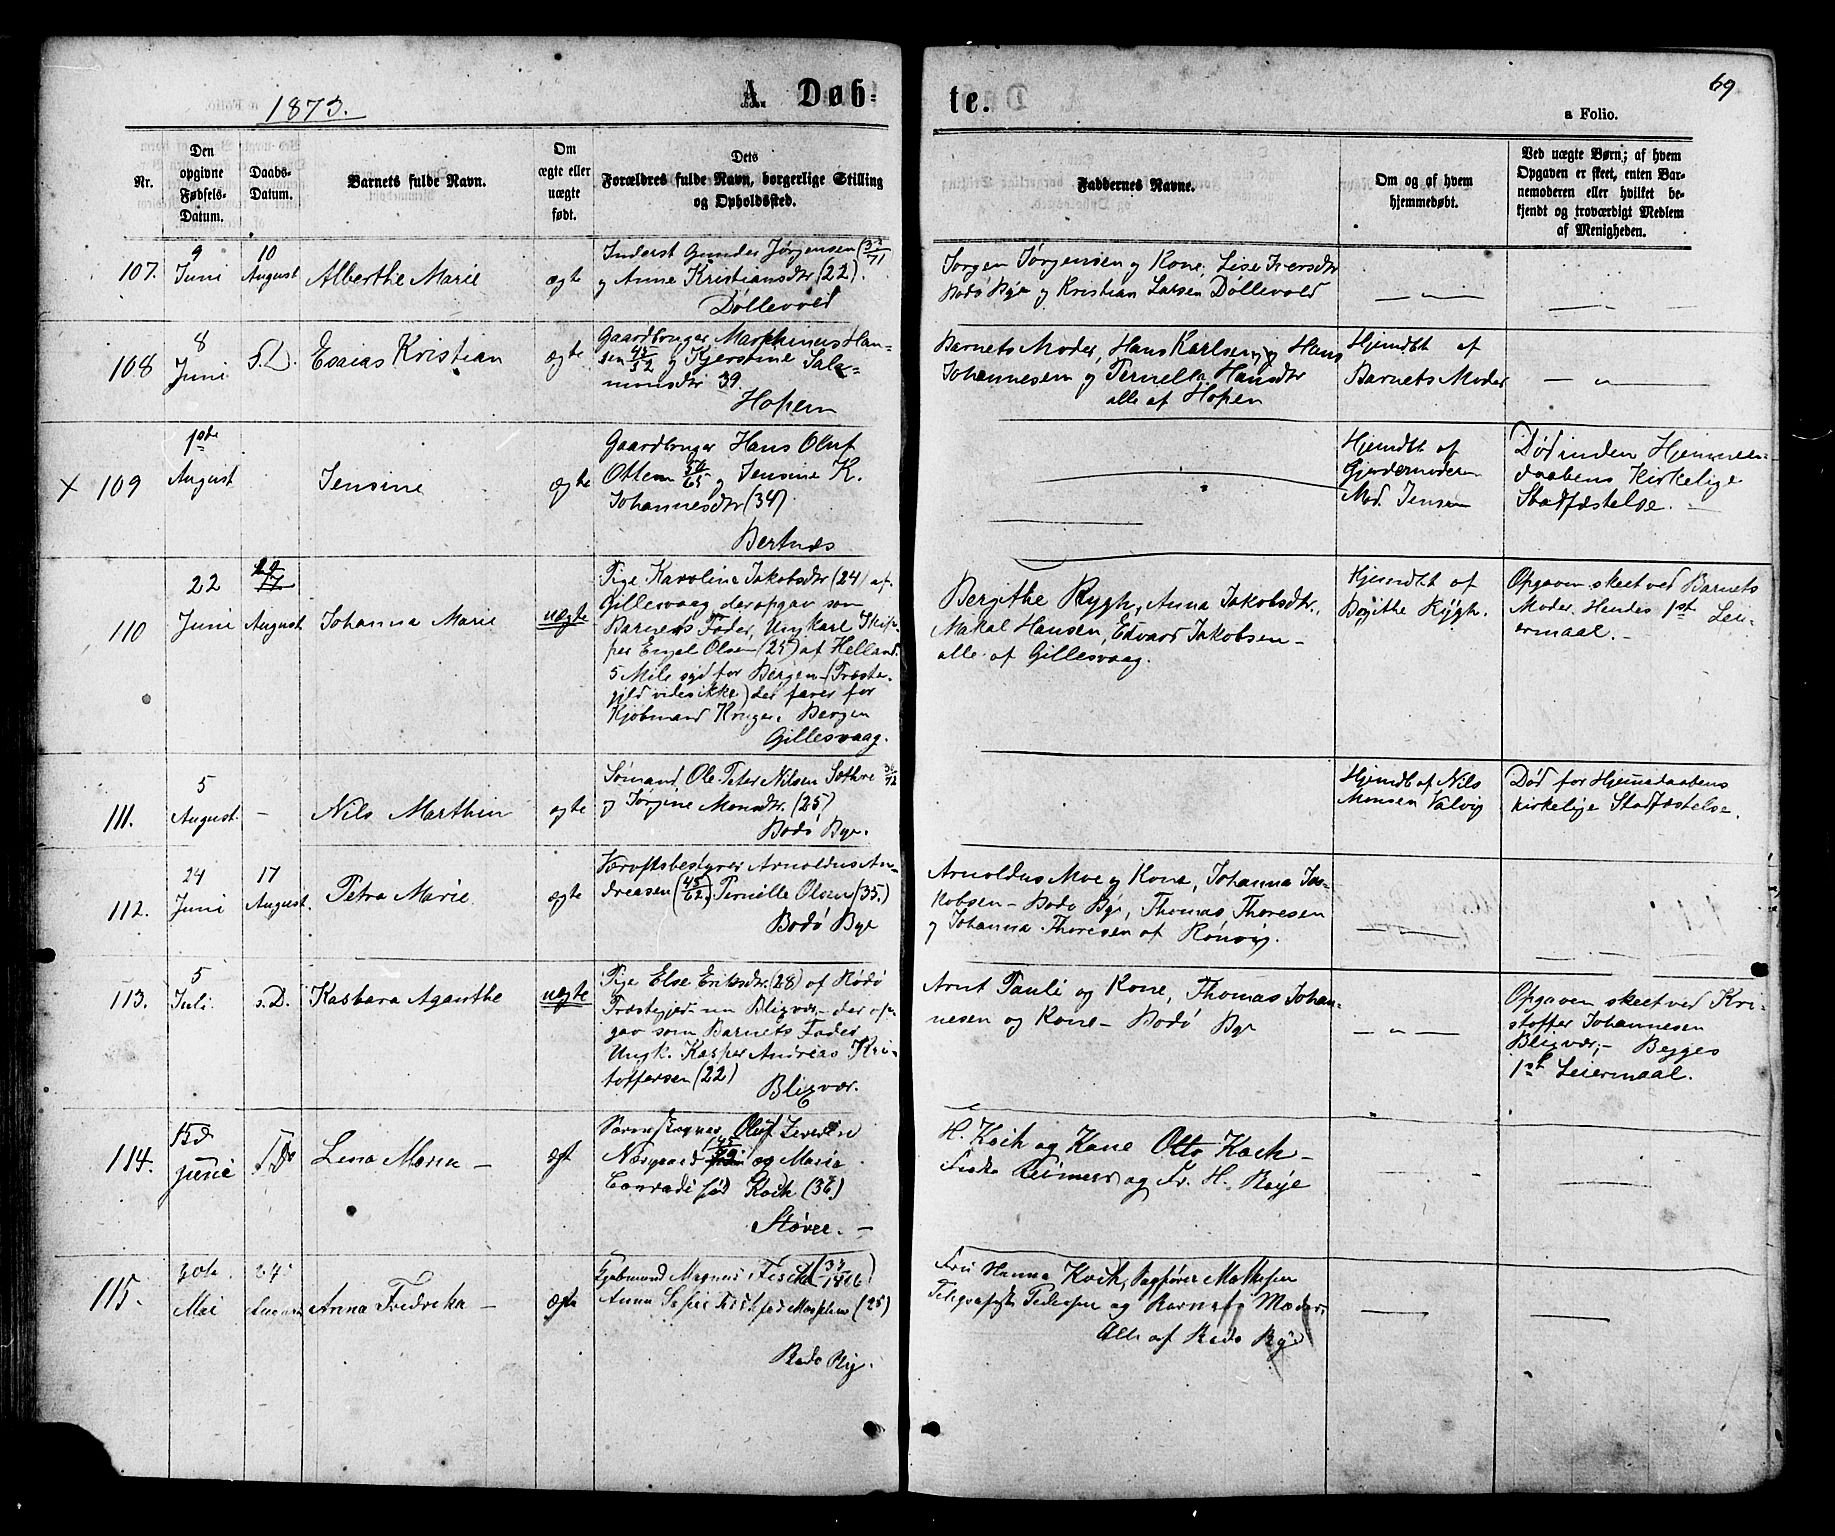 1873.
A. Døb-
te.
69
a Folio.
Nr.
Den
opgivne
Fødsels-
Datum.
Daabs-
Datum.
Barnets fulde Navn.
Om
ægte eller
uægte
født.
Dets
Forældres fulde Navn, borgerlige Stilling
og Opholdssted.
Faddernes Navne.
Om og af hvem
hjemmedøbt.
Ved uægte Børn; af hvem
Opgaven er skeet, enten Bar-
nemoderen eller hvilket be-
kjendt og troværdigt Medlem
af Menigheden.
107.
9
Juni
10
August
Alberthe Marie
ægte
Inderst Gunder Jørgensen
og Anne Kristiansdtr (22).
Dollevold
Jørgen Jørgensen og Kone, Lise Iversdtr
Bodø Bye og Kristian Larsen Dollevold
— " —
108
8
Juni
S.D.
Esaias Kristian
ægte
Gaardbruger Marthinus Han-
sen 45/32 og Kjerstine Salo-
monsdtr 39.
Hopen
Barnets Moder, Hans Karlsen og Hans
Johannesen og Pernella Hansdtr
alle af Hopen
Hjemdbt af
Barnets Moder
— " —
X 109
1ste
August
Jensine
ægte
Gaardbruger Hans Oluf
Ottesen og Jensine K.
Johannesdtr (34)
Bertnæs
Hjemdbt af
Gjordemoderen
Mad. Jensen
Død inden Hjemme-
daabens Kirkelige
Stadfæstelse.
110
22
Juni
August
Johanna Marie
uægte
Pige Karoline Jakobsdtr (24) af
Gillesvaag, der opgav som
Barnets Fader, Ungkarl Skip-
per Engel Olsen (25) af Helland
5 Mile syd for Bergen (Præste-
gjeld vides ikke) der farer for
Kjøbmand Kruger, Bergen
Gillesvaag.
Bergithe Rygh, Anna Jakobsdtr,
Makal Hansen, Edvard Jakobsen —
alle af Gillesvaag.
Hjemdbt af
Bergithe Rygh.
Opgaven skeet ved Barnets
Moder. Hendes 1st Lei-
ermaal. —
111.
5
August.
—
Nils Marthin
ægte
Sømand, Ole Peter Nilsen Sæthre
og Jørgine Monsdtr. (25)
Bodø Bye.
Hjemdb af Nils
Monsen Valvig
Død for Hjemedaabens
kirkelige Stadfæstelse.
112.
24
Juni
17
August.
Petra Marie
ægte
Værftsbestyrer Arnoldus An-
dreasen (45/62), Pernille Olsen (35.)
Bodø Bye
Arnoldus Moe og Kone, Johanna Ja-
kobsen — Bodø Bye, Thomas Thoresen
og Johanna Thoresen af Rønvig.
113.
5
Juli
s.D.
Kasbara Aganthe
uægte
Pige Else Eriksdtr (28) af Rødø
Præstegjed — nu Bligvær — der op-
gav som Barnets Fader
Ungk. Kasper Andreas Kri-
stoffersen (22)
Bligvær.
Arnt Pauli og Kone, Thomas Johan-
nesen og Kone — Bodø Bye
— " —
Opgaven skeet ved Kri-
stoffer Johannesen
Bligvær, — Begges
1st Leiermaal.
114.
15d
Junie
S. D.
Lena Maria —
ægt
Oluf
Næsgaard og Maria
født Koch (36)
Støver. —
H. Koch og Kone Otto Koch —
og Fr. H. Røije
115.
30te
Mai
24
August
Anna Fredrika —
ægte
Kjøbmand Magnus
Anna Sofie (25)
Bodø By.
Fru Hanna Koch, Bogfører Mathisen
Telegrafist Pedersen og Barnets Moder
Alle af Bodø By